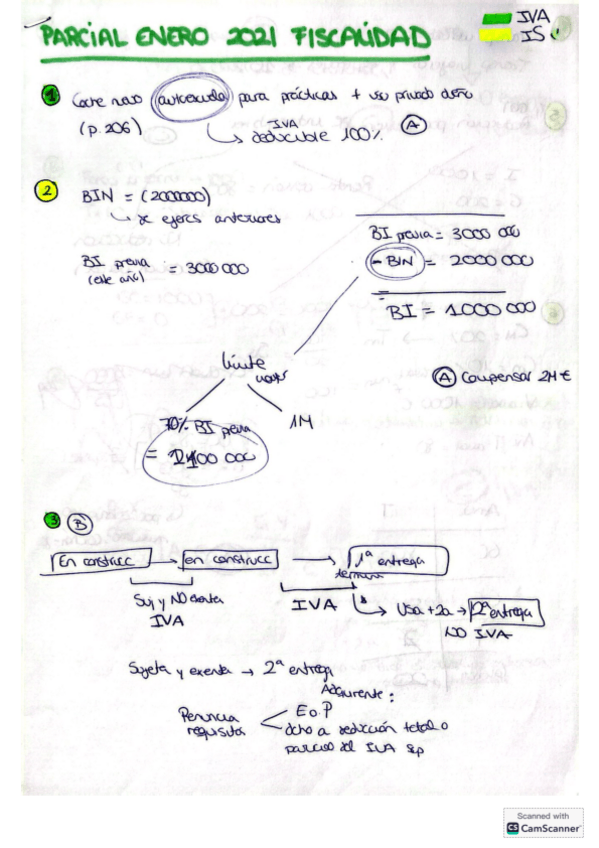 IVA
PARCIAL ENERO 2021 FISCALIDAD
IS
1 Coche nuevo autoescuela para prácticas + uso privado dueño
(p. 206)
IVA
deducible 100% A
2 BIN = (2000000)
de ejerc anteriores
BI previa = 3000 000
(este año)
BI previa = 3000 000
- BIN = 2000 000
BI = 1.000 000
límite
A Compensar 2M €
70% BI previa
1M
= 2100 000
3 B
En construcc
en construcc
1ª entrega
termin
Suj y NO exenta
IVA
IVA
Usa + 2a → 2ª entrega
NO IVA
Sujeta y exenta → 2ª entrega
Adquirente:
Renuncia
requisitos
E o P
dcho a deducción total o
parcial del IVA sop
Scanned with
CS CamScanner